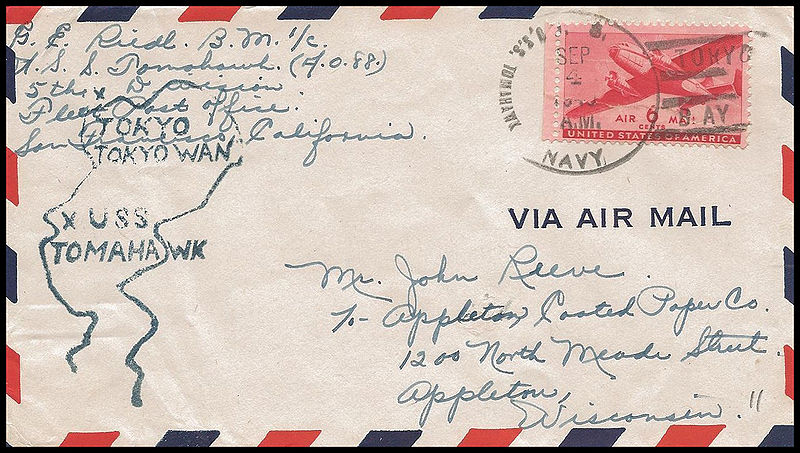 G. E. Riedl. B.M. 1/c.
U.S.S. Tomahawk. (A.O.88.)
5th Division
Fleet Post Office.
San Francisco, California.
x
TOKYO
TOKYO WAN
x USS
TOMAHAWK
U.S.S. TOMAHAWK
SEP
4
A.M.
NAVY
TOKYO
BAY
AIR 6¢ MAIL
CENTS
UNITED STATES OF AMERICA
VIA AIR MAIL
Mr. John Reeve.
℅ Appleton Coated Paper Co.
1200 North Meade Street.
Appleton,
Wisconsin.
11